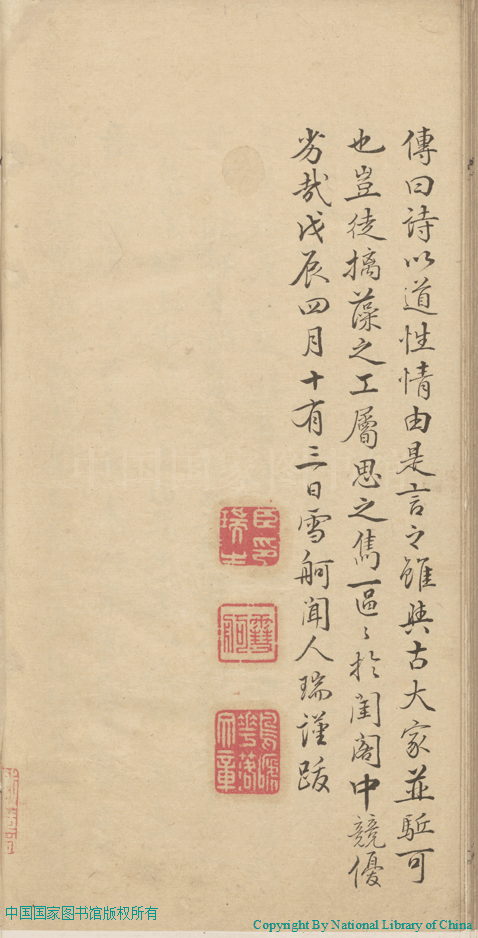 傳曰詩以道性情由是言之雖與古大家並駈可
也豈徒摛藻之工屬思之雋區〻於閨閣中競優
劣哉戊辰四月十有三日雪舸聞人瑞謹跋
雪舸
中国国家图书馆版权所有
Copyright By National Library of China